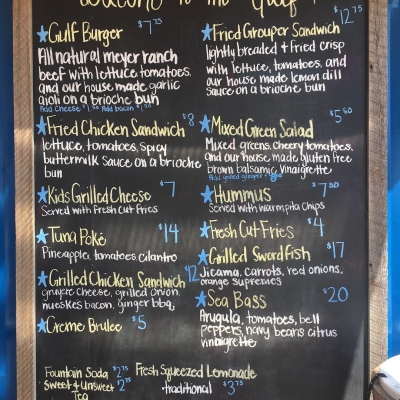 Welcome to the Gulf
Gulf Burger $7.75
All natural meyer ranch
beef with lettuce, tomatoes,
and our house made garlic
aioli on a brioche bun
Add Cheese Add bacon
Fried Chicken Sandwich $8
lettuce, tomatoes, spicy
buttermilk sauce on a brioche
bun
Kids Grilled Cheese $7
Served with Fresh Cut Fries
Tuna Poké $14
Pineapple, tomatoes, cilantro
Grilled Chicken Sandwich $12
gruyere cheese, grilled onion,
nueskes bacon, ginger bbq
Creme Brulee $5
Fountain Soda $2.75
Sweet & Unsweet $2.75
Tea
Fried Grouper Sandwich $12.75
lightly breaded & fried crisp
with lettuce, tomatoes, and
our house made lemon dill
sauce on a brioche bun
Mixed Green Salad $5.50
Mixed greens, cherry tomatoes,
and our house made gluten free
brown balsamic vinaigrette
Add grilled grouper
Hummus $7.50
Served with warm pita chips
Fresh Cut Fries $4
Grilled Swordfish $17
Jicama, carrots, red onions,
orange supremes
Sea Bass $20
Arugula, tomatoes, bell
peppers, navy beans citrus
vinaigrette
Fresh Squeezed Lemonade
-traditional $3.75